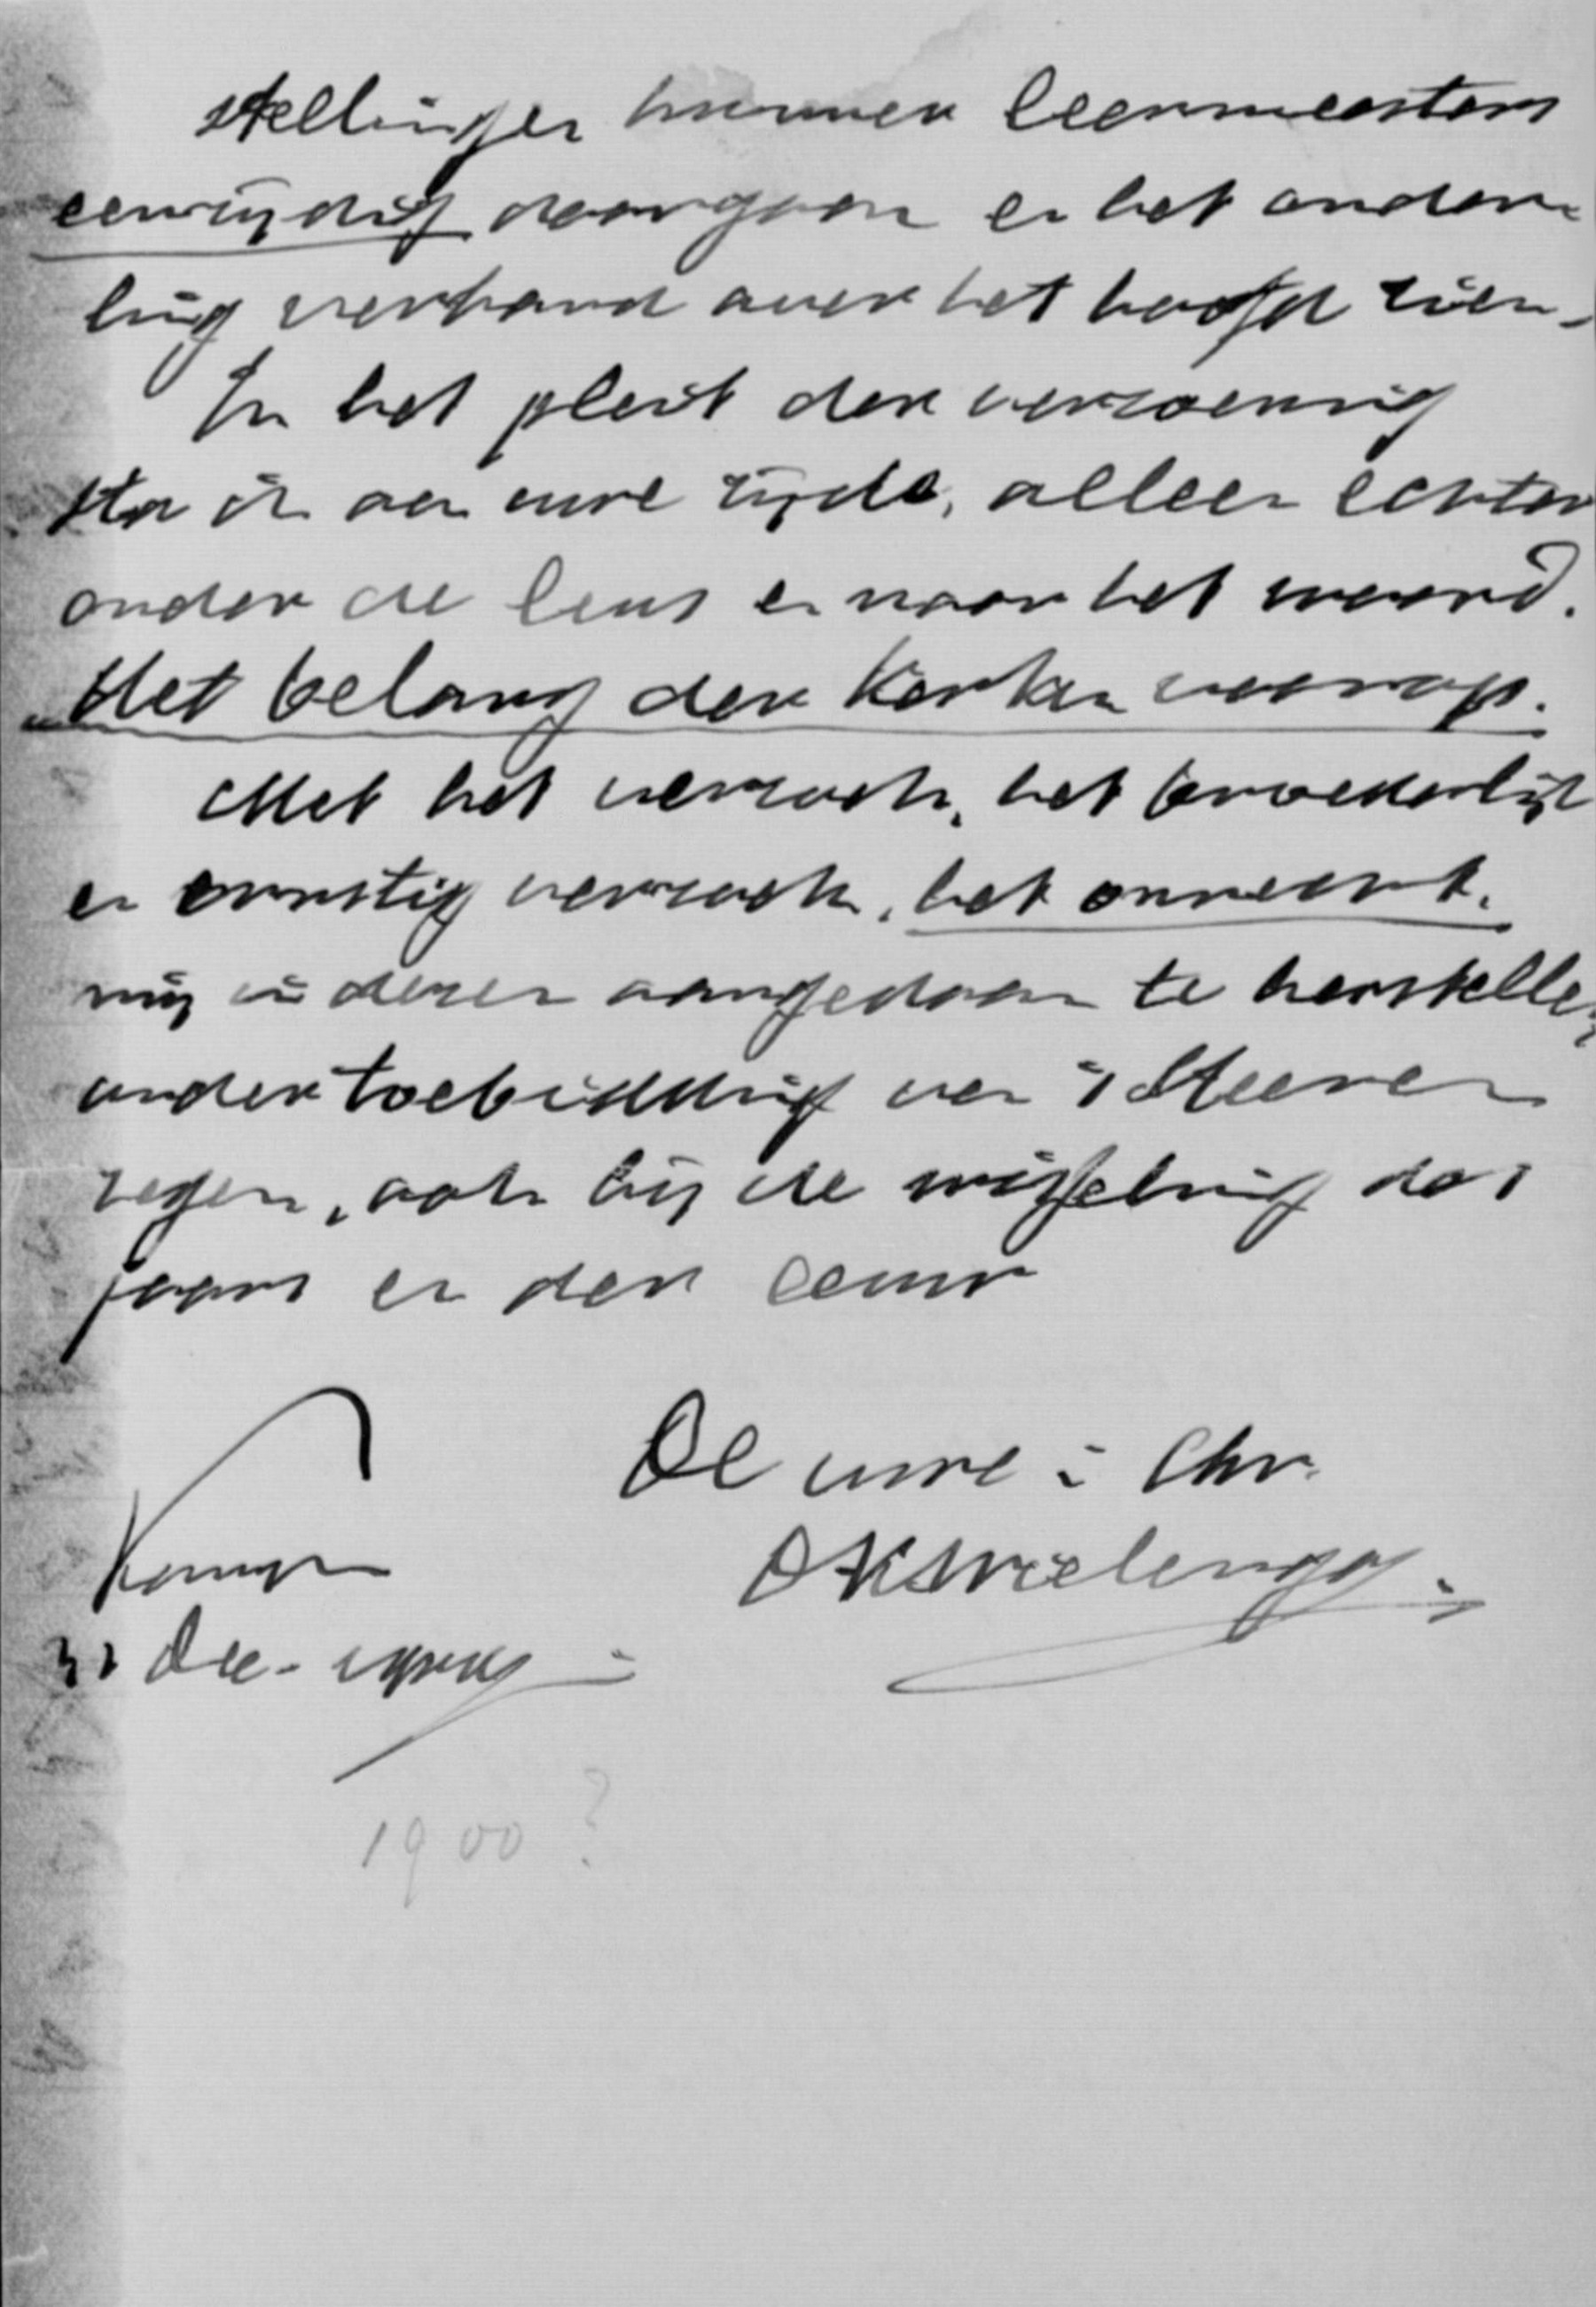 stellingen hunner leermeesters
eenzijdig doorgaan en het onder-
ling verband over het hoofd zien.
In het pleit der verzoening
sta ik aan uwe zijde, alleen echter
onder de leus en naar het woord.
"Het belang der Kerken voorop.
Met het verzoek, het broederlijk
en ernstig verzoek, het onrecht,
mij in dezen aangedaan te herstellen,
onder toebidding van 's Heeren
zegen, ook bij de wisseling des
jaars en der eeuw
De uwe in Chr.
DKWielenga
Kampen
31 Dec.
1900?